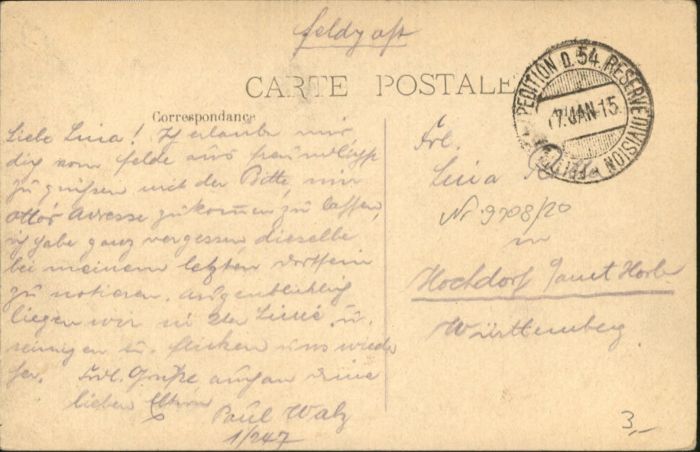 Feldpost
CARTE POSTALE
Correspondance
PEDITION D. 54. RESERVEDIVISION
17. JAN 15.
Liebe Lina! Ich erlaube mir,
dich vom Felde aus freundlichst
zu grüßen mit der Bitte, mir
Otto's Adresse zukommen zu lassen,
ich habe ganz vergessen dieselbe
bei meinem letzten Dortsein
zu notieren. Augenblicklich
liegen wir in der Linie u.
reinigen u. flicken uns wieder
her. Frdl. Grüße, auch an deine
lieben Eltern
Paul Walz
1/247
Frl.
Lina
Nr 9708/20
in
Hochdorf Oamt Horb
Württemberg
3,-